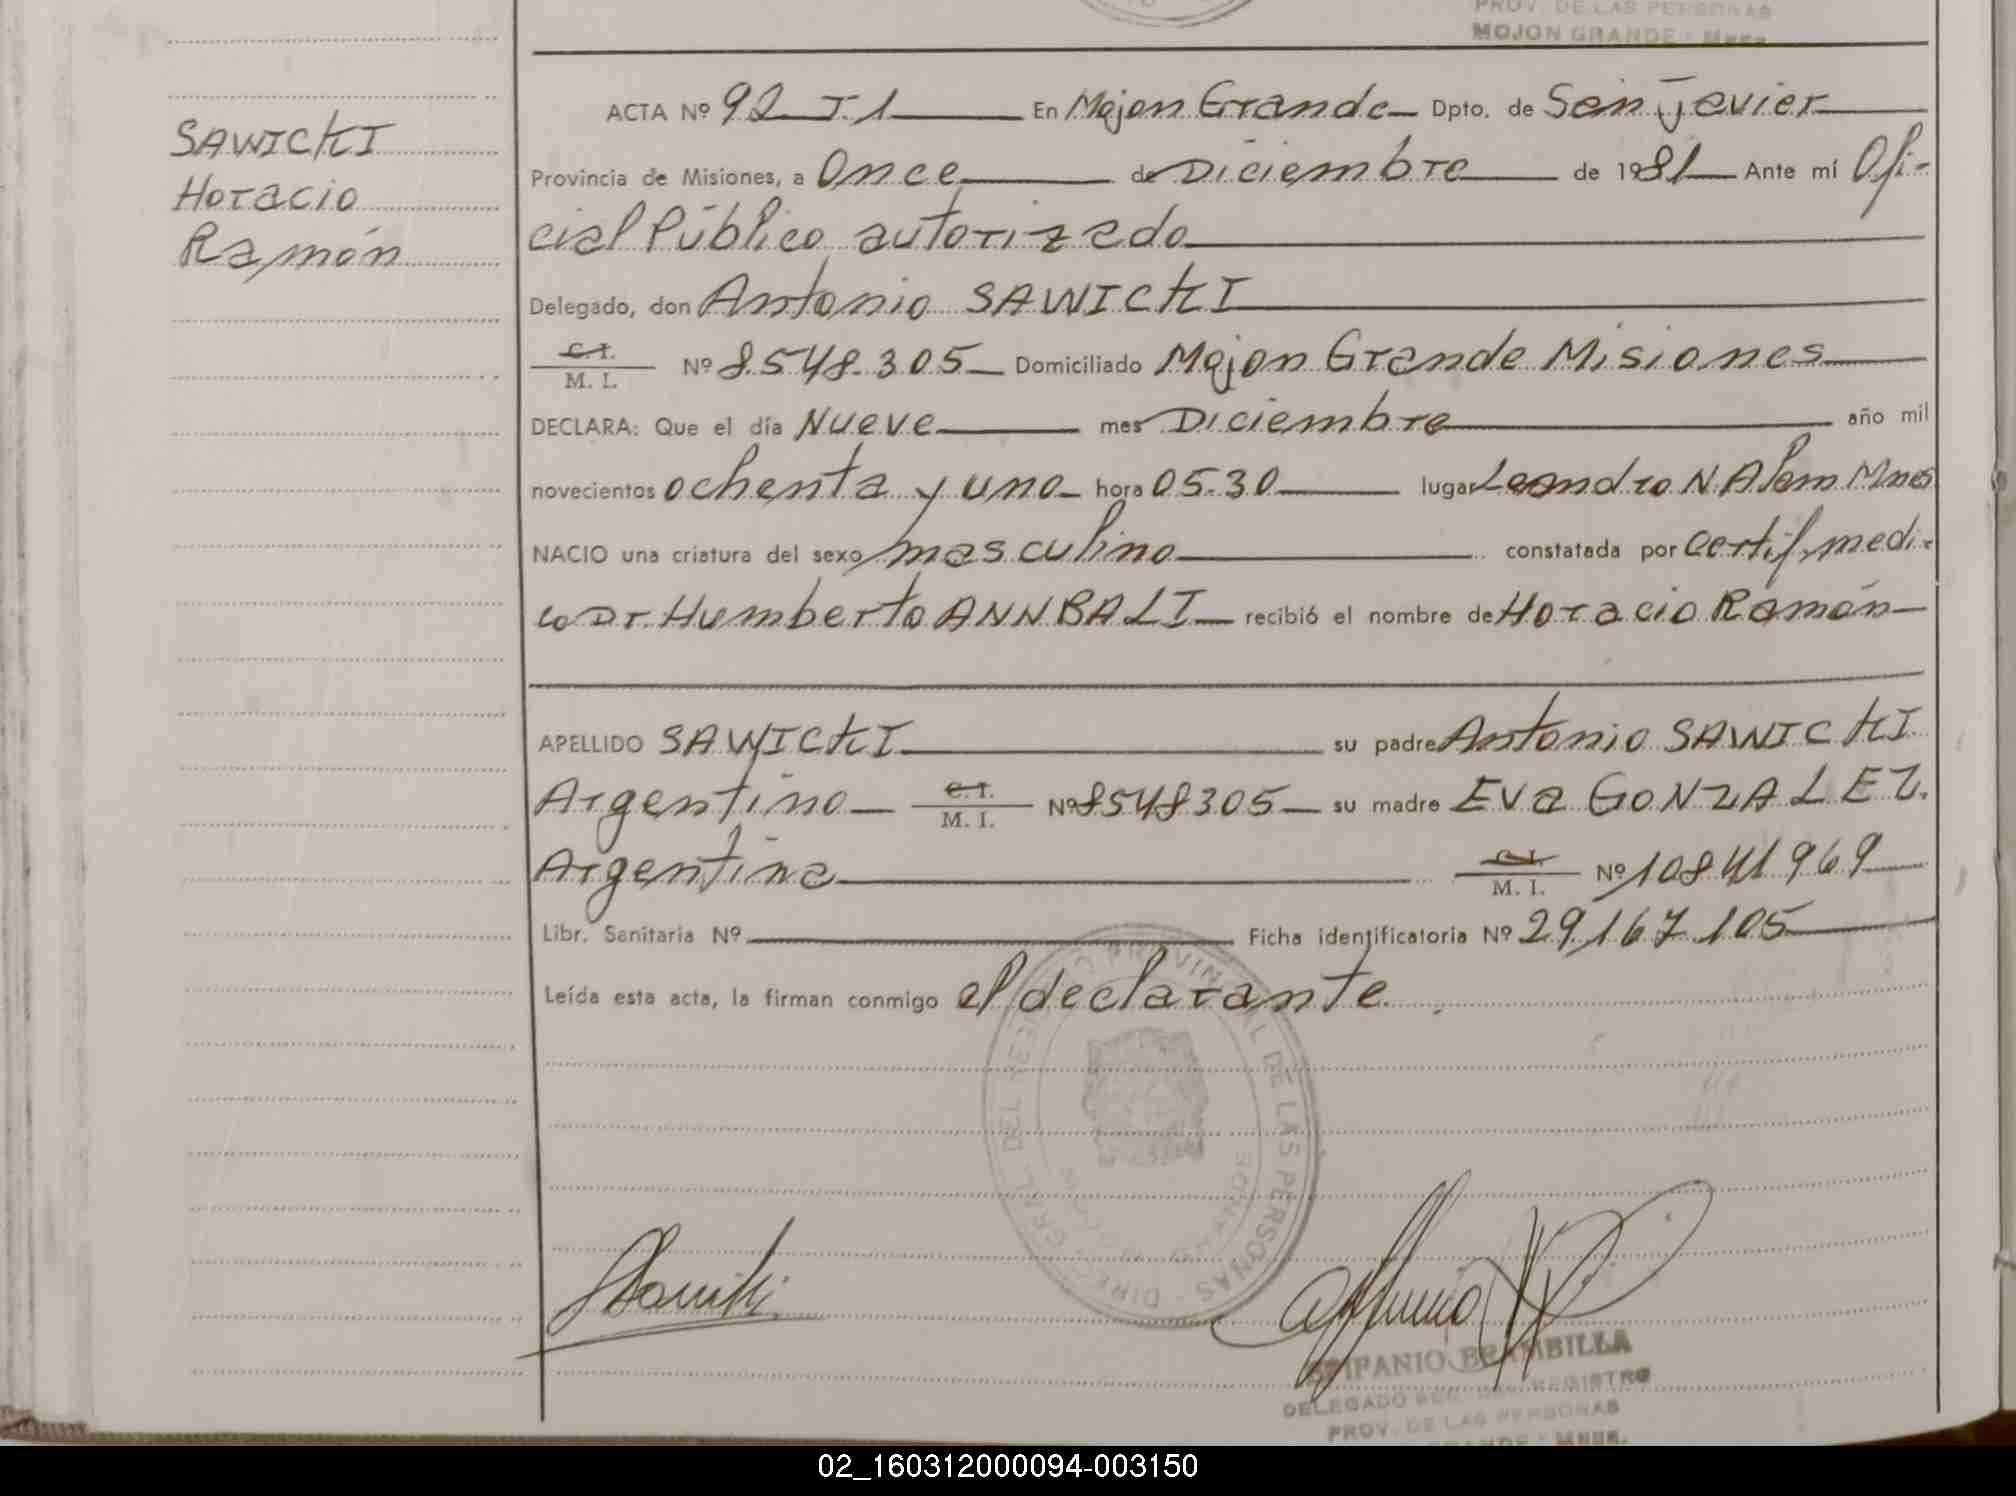 PROV. DE LAS PERSONAS
MOJON GRANDE - Mnes.
SAWICKI
Horacio
Ramón
ACTA Nº 92 T.1 En Mojon Grande Dpto. de San Javier
Provincia de Misiones, a Once de Diciembre de 1981 Ante mí Ofi-
cial Público autorizado
Delegado, don Antonio SAWICKI
C.I.
M. I. Nº 8.548.305 Domiciliado Mojon Grande Misiones
DECLARA: Que el día Nueve mes Diciembre año mil
novecientos ochenta y uno hora 05.30 lugar Leandro N. Alem Mnes
NACIO una criatura del sexo masculino constatada por certif. medi-
co Dr. Humberto ANNBALI recibió el nombre de Horacio Ramón
APELLIDO SAWICKI su padre Antonio SAWICKI
Argentino C.I. M. I. Nº 8548305 su madre Eva GONZALEZ.
Argentina C.I. M. I. Nº 10841969
Libr. Sanitaria Nº Ficha identificatoria Nº 29.167.105
Leída esta acta, la firman conmigo el declarante.
DIREC. GRAL. DEL REGISTRO PROVINCIAL DE LAS PERSONAS
EPIFANIO BRAMBILLA
DELEGADO REGISTRO
PROV. DE LAS PERSONAS
GRANDE - Mnes.
02_160312000094-003150